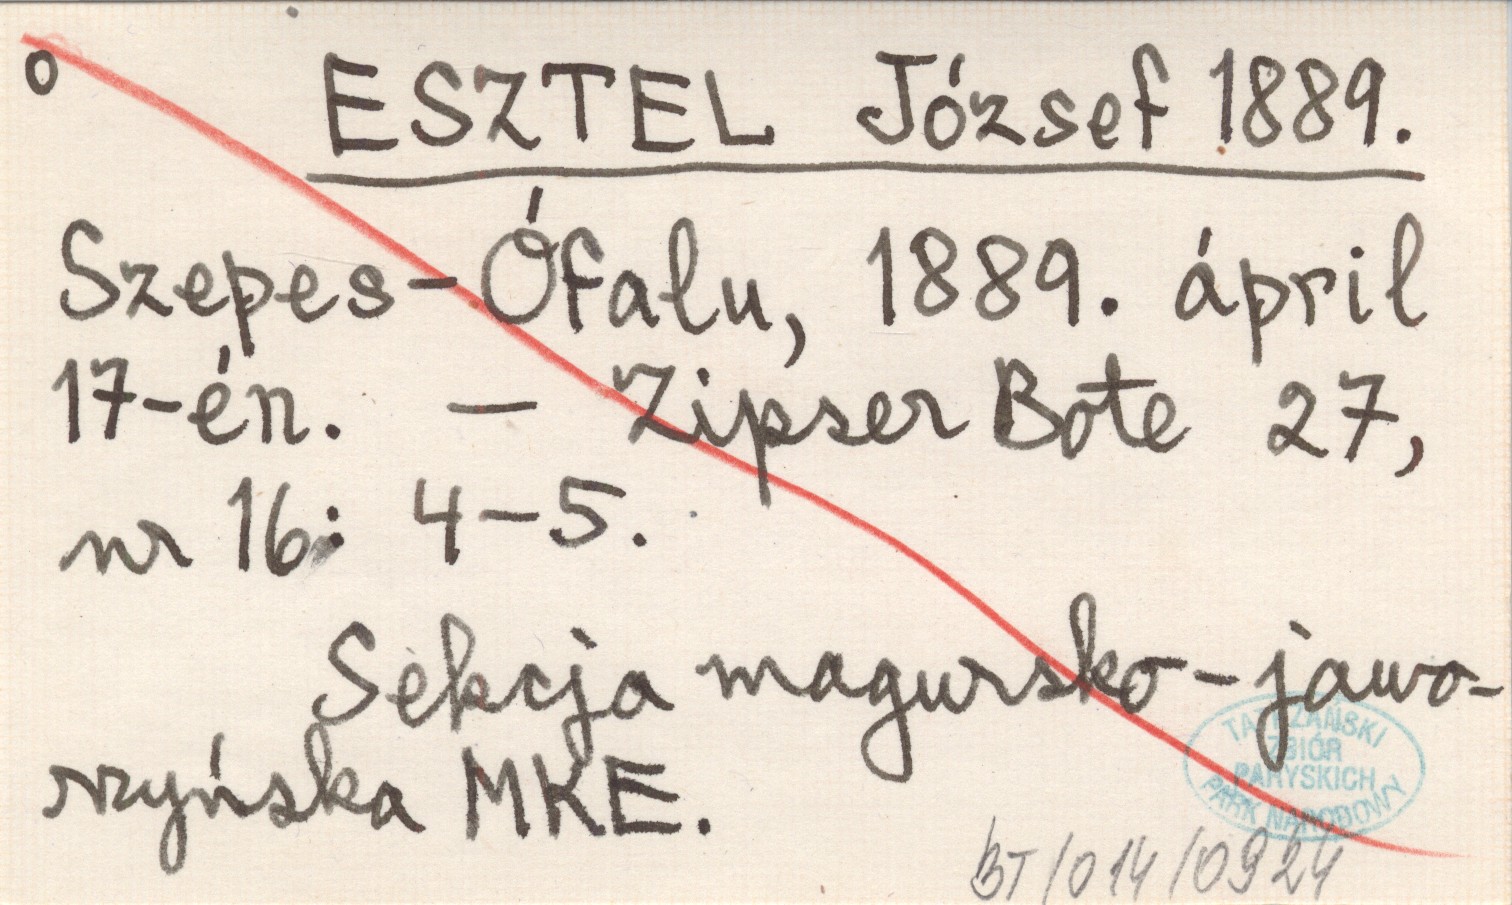 o
ESZTEL József 1889.
Szepes-Ófalu, 1889. ápril
17-én. — Zipser Bote 27,
nr 16: 4-5.
Sekcja magursko-jawo-
rzyńska MKE.
TATRZAŃSKI
ZBIÓR
PARYSKICH
PARK NARODOWY
BT/014/0924